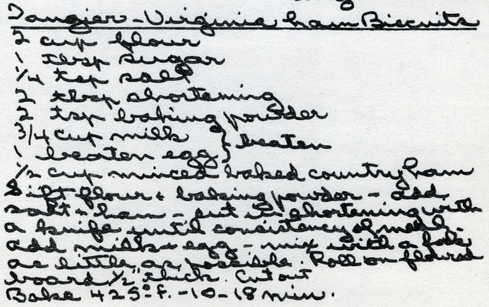 Tangier-Virginia Ham Biscuits
2 cup flour
1 tbsp sugar
1/4 tsp salt
2 tbsp shortening
2 tsp baking powder
3/4 cup milk } beaten
1 beaten egg }
1/2 cup minced baked country ham
Sift flour + baking powder - add
salt + ham - cut in shortening with
a knife until consistency of meal -
add milk + egg - mix with a fork
as little as possible. Roll on floured
board 1/2" thick. Cut out
Bake 425°F. -10-18 min.